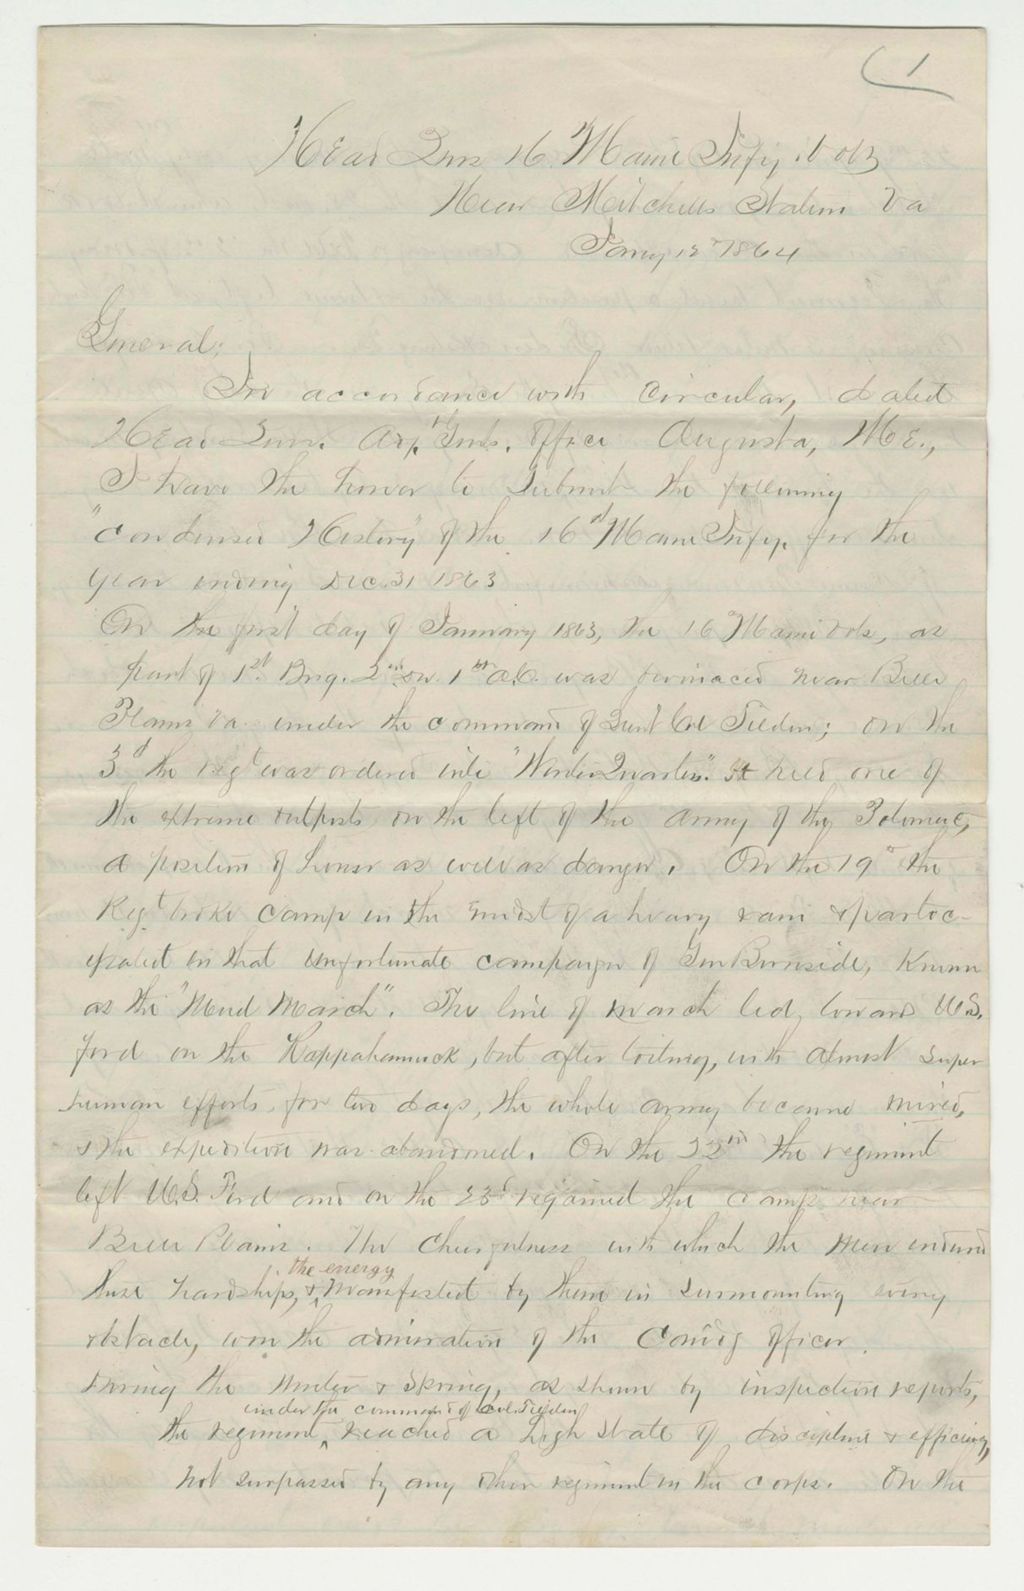 1
Head Qurs 16 Maine Infy Vols
Near Mitchells Station Va
Jany 12" 1864
General;
In accordance with Circular, dated
Head Qurs. Adjt Genls. Office Augusta, ME.,
I have the honor to submit the following
"Condensed History" of the 16th Maine Infy. for the
year ending Dec. 31 1863
On the first day of January 1863, the 16 Maine Vols, as
part of 1st. Brig. 2nd Div. 1st A.C. was bivouaced near Belle
Plains Va. under the command of Lieut Col Tilden; on the
3d the Regt was ordered into "Winter Quarters." It held one of
the extreme outposts on the left of the Army of the Potomac,
a position of honor as well as danger. On the 19" the
Regt broke camp in the midst of a heavy rain & partic-
ipated in that unfortunate campaign of Gen Burnside, known
as the "Mud March". The line of march led toward U.S.
Ford on the Rappahannock, but after toiling, with almost super
human efforts for two days, the whole army became mired,
& the expedition was abandoned. On the 22nd the regiment
left U.S. Ford and on the 23d regained the camp near
Belle Plains. The cheerfulness with which the men endured
the energy
these hardships, & manifested by them in surmounting every
obstacle, won the admiration of the Comdg Officer.
During the Winter & Spring, as shown by inspection reports,
under the command of Col. Tilden
the regiment, reached a high state of discipline & efficiency,
not surpassed by any other regiment in the corps. On the